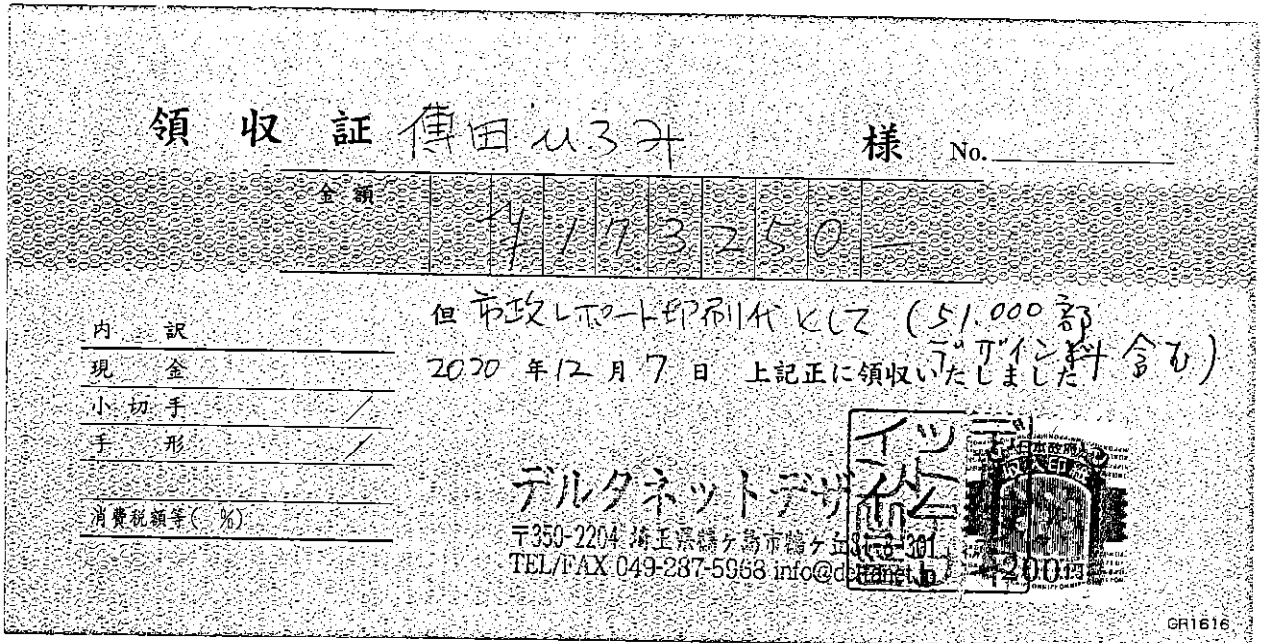 領収証 傳田ひろみ 様 No.
金額
¥173250-
但 市政レポート印刷代として (51.000部
デザイン料含む)
2020年12月7日 上記正に領収いたしました
内訳
現金
小切手 /
手形 /
消費税額等( %)
デルタネットデザイン
〒350-2204 埼玉県鶴ヶ島市鶴ヶ丘
TEL/FAX 049-287-5968 info@deltanet.jp
日本政府
収入印紙
200円
GR1616